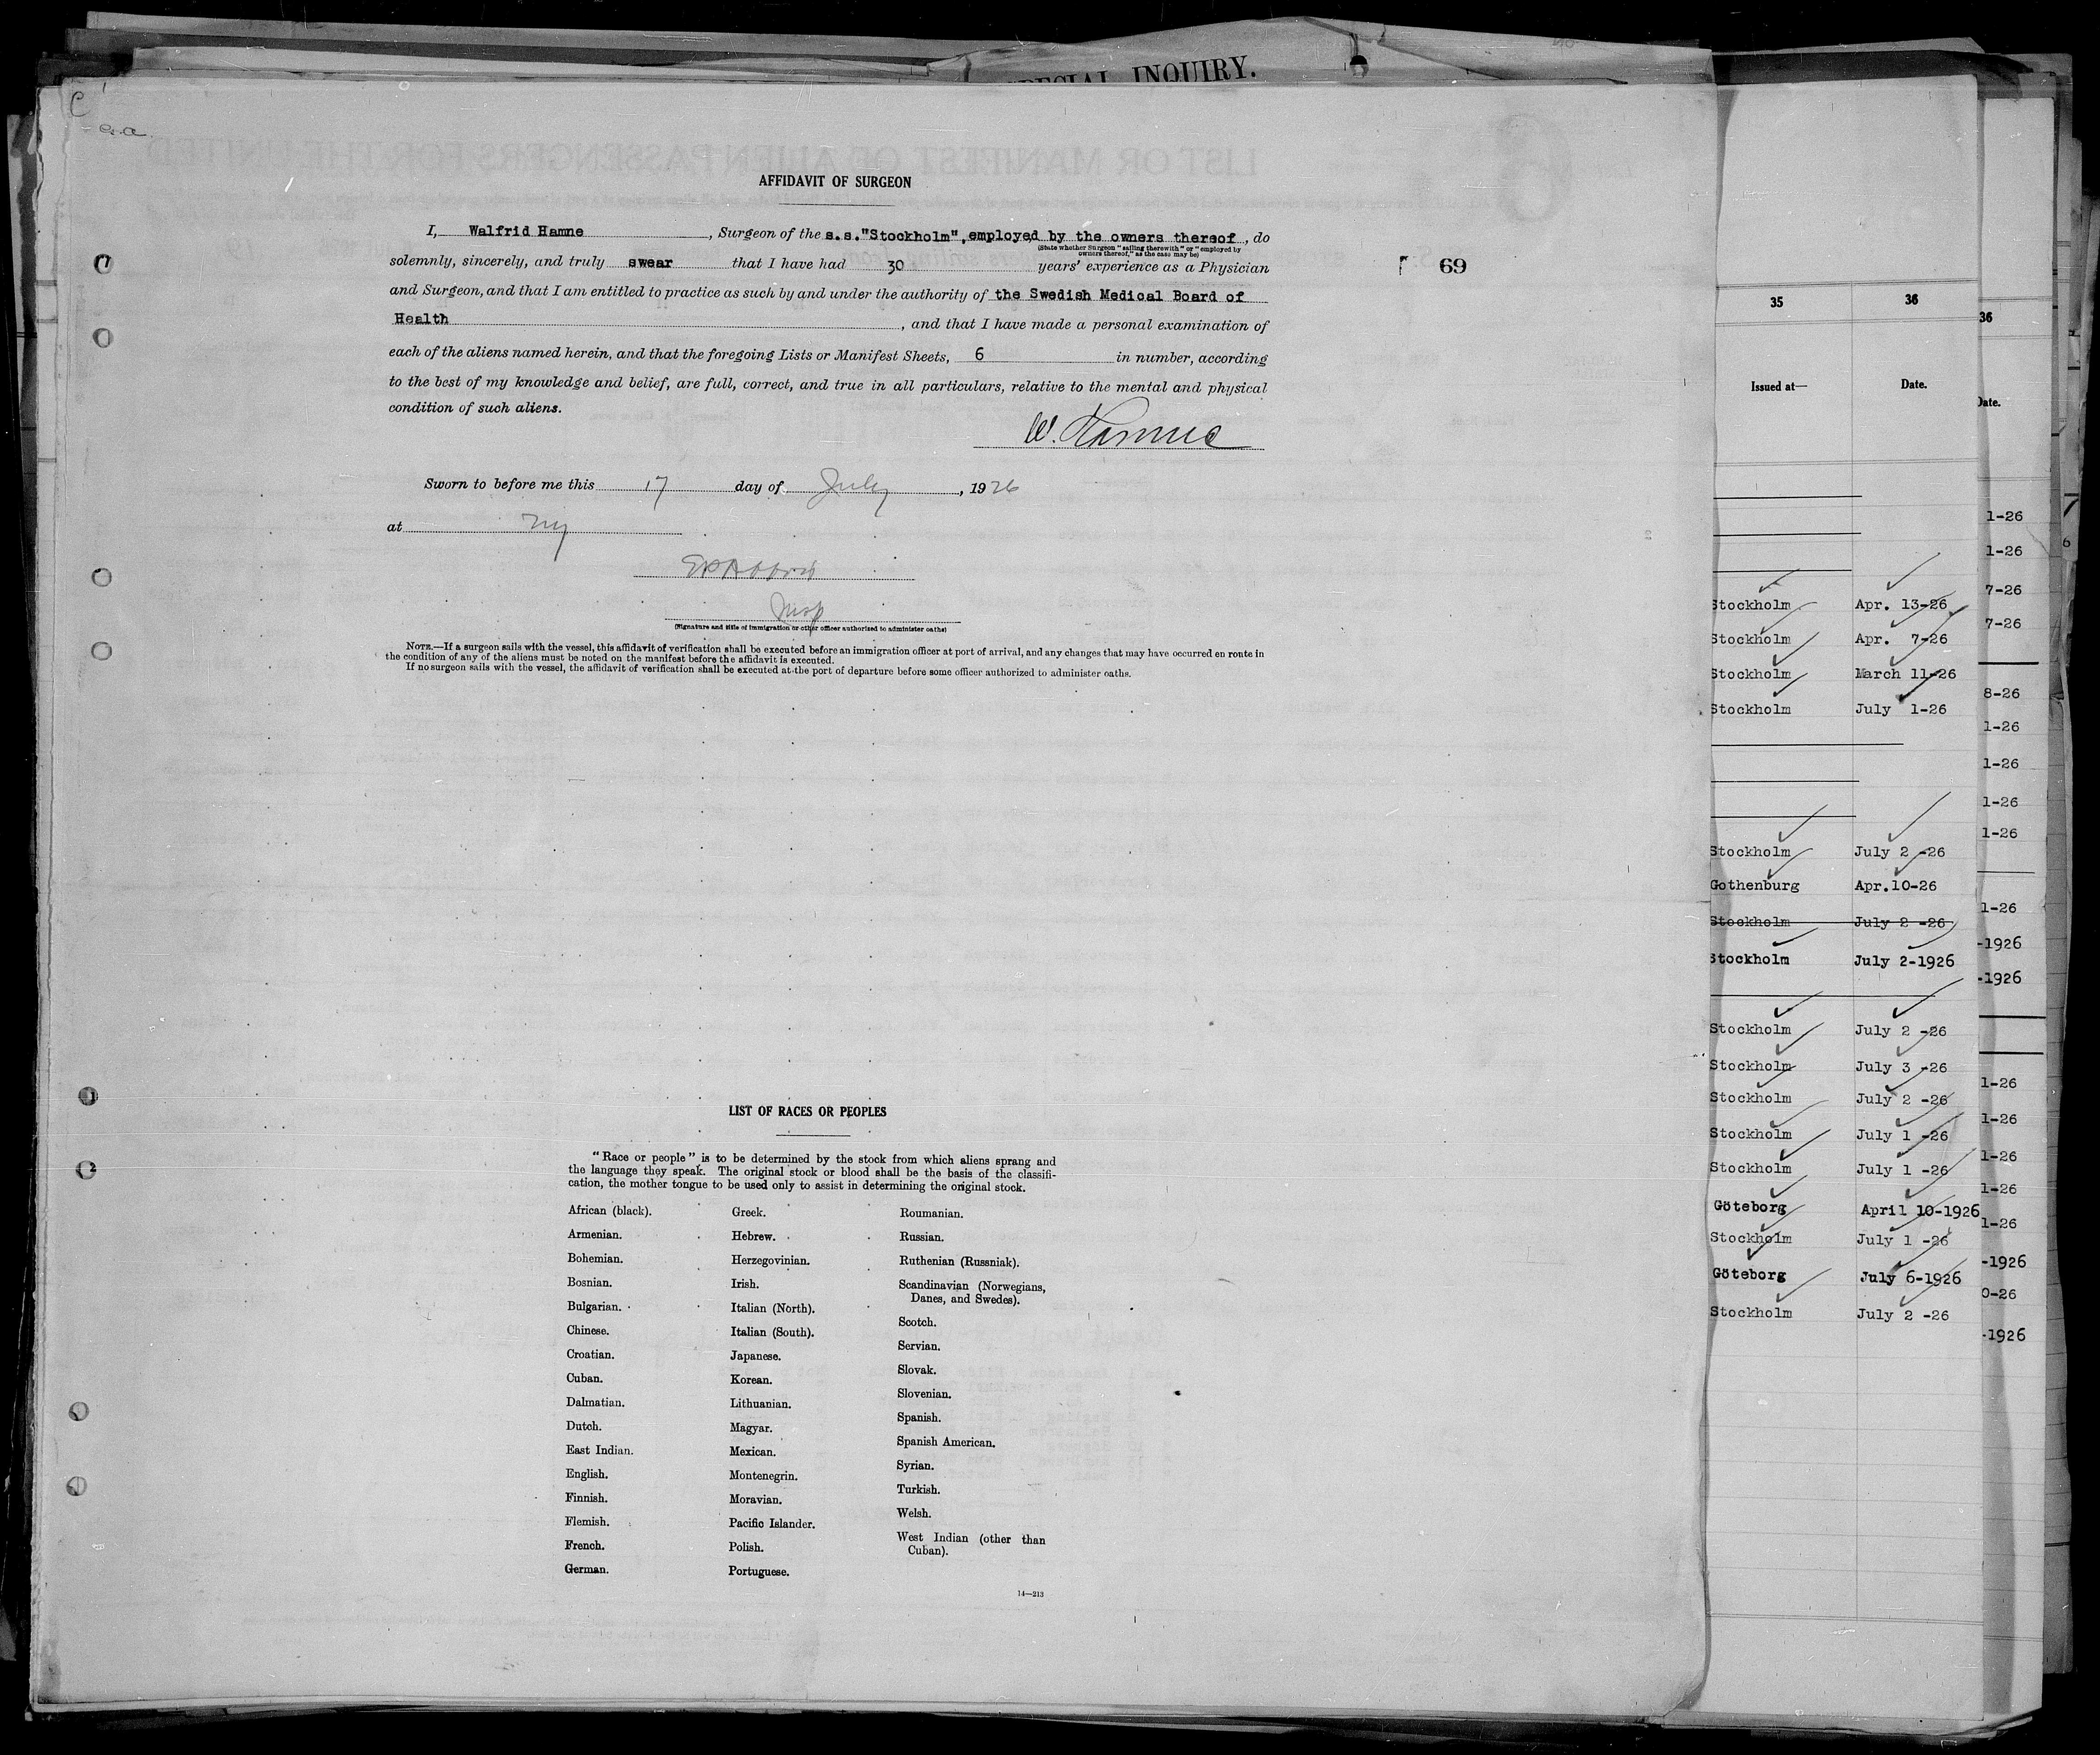 SPECIAL INQUIRY.
AFFIDAVIT OF SURGEON
I, Walfrid Hamne, Surgeon of the s.s."Stockholm", employed by the owners thereof, do
(State whether Surgeon "sailing therewith" or "employed by
owners thereof," as the case may be)
solemnly, sincerely, and truly swear that I have had 30 years' experience as a Physician
69
and Surgeon, and that I am entitled to practice as such by and under the authority of the Swedish Medical Board of
Health, and that I have made a personal examination of
each of the aliens named herein, and that the foregoing Lists or Manifest Sheets, 6 in number, according
to the best of my knowledge and belief, are full, correct, and true in all particulars, relative to the mental and physical
condition of such aliens.
W. Hamne
Sworn to before me this 17 day of July, 1926
at NY
Insp
(Signature and title of immigration or other officer authorized to administer oaths)
NOTE.—If a surgeon sails with the vessel, this affidavit of verification shall be executed before an immigration officer at port of arrival, and any changes that may have occurred en route in
the condition of any of the aliens must be noted on the manifest before the affidavit is executed.
If no surgeon sails with the vessel, the affidavit of verification shall be executed at the port of departure before some officer authorized to administer oaths.
LIST OF RACES OR PEOPLES
"Race or people" is to be determined by the stock from which aliens sprang and
the language they speak. The original stock or blood shall be the basis of the classifi-
cation, the mother tongue to be used only to assist in determining the original stock.
African (black).
Armenian.
Bohemian.
Bosnian.
Bulgarian.
Chinese.
Croatian.
Cuban.
Dalmatian.
Dutch.
East Indian.
English.
Finnish.
Flemish.
French.
German.
Greek.
Hebrew.
Herzegovinian.
Irish.
Italian (North).
Italian (South).
Japanese.
Korean.
Lithuanian.
Magyar.
Mexican.
Montenegrin.
Moravian.
Pacific Islander.
Polish.
Portuguese.
Roumanian.
Russian.
Ruthenian (Russniak).
Scandinavian (Norwegians,
Danes, and Swedes).
Scotch.
Servian.
Slovak.
Slovenian.
Spanish.
Spanish American.
Syrian.
Turkish.
Welsh.
West Indian (other than
Cuban).
14—213
35 36
Issued at— Date.
Stockholm Apr. 13-26
Stockholm Apr. 7-26
Stockholm March 11-26
Stockholm July 1-26
Stockholm July 2 -26
Gothenburg Apr.10-26
Stockholm July 2 -26
Stockholm July 2-1926
Stockholm July 2 -26
Stockholm July 3 -26
Stockholm July 2 -26
Stockholm July 1 -26
Stockholm July 1 -26
Göteborg April 10-1926
Stockholm July 1 -26
Göteborg July 6-1926
Stockholm July 2 -26
36
Date.
1-26
1-26
7-26
7-26
8-26
1-26
1-26
1-26
1-26
1-26
-1926
-1926
1-26
1-26
1-26
1-26
1-26
-1926
0-26
-1926
7
6